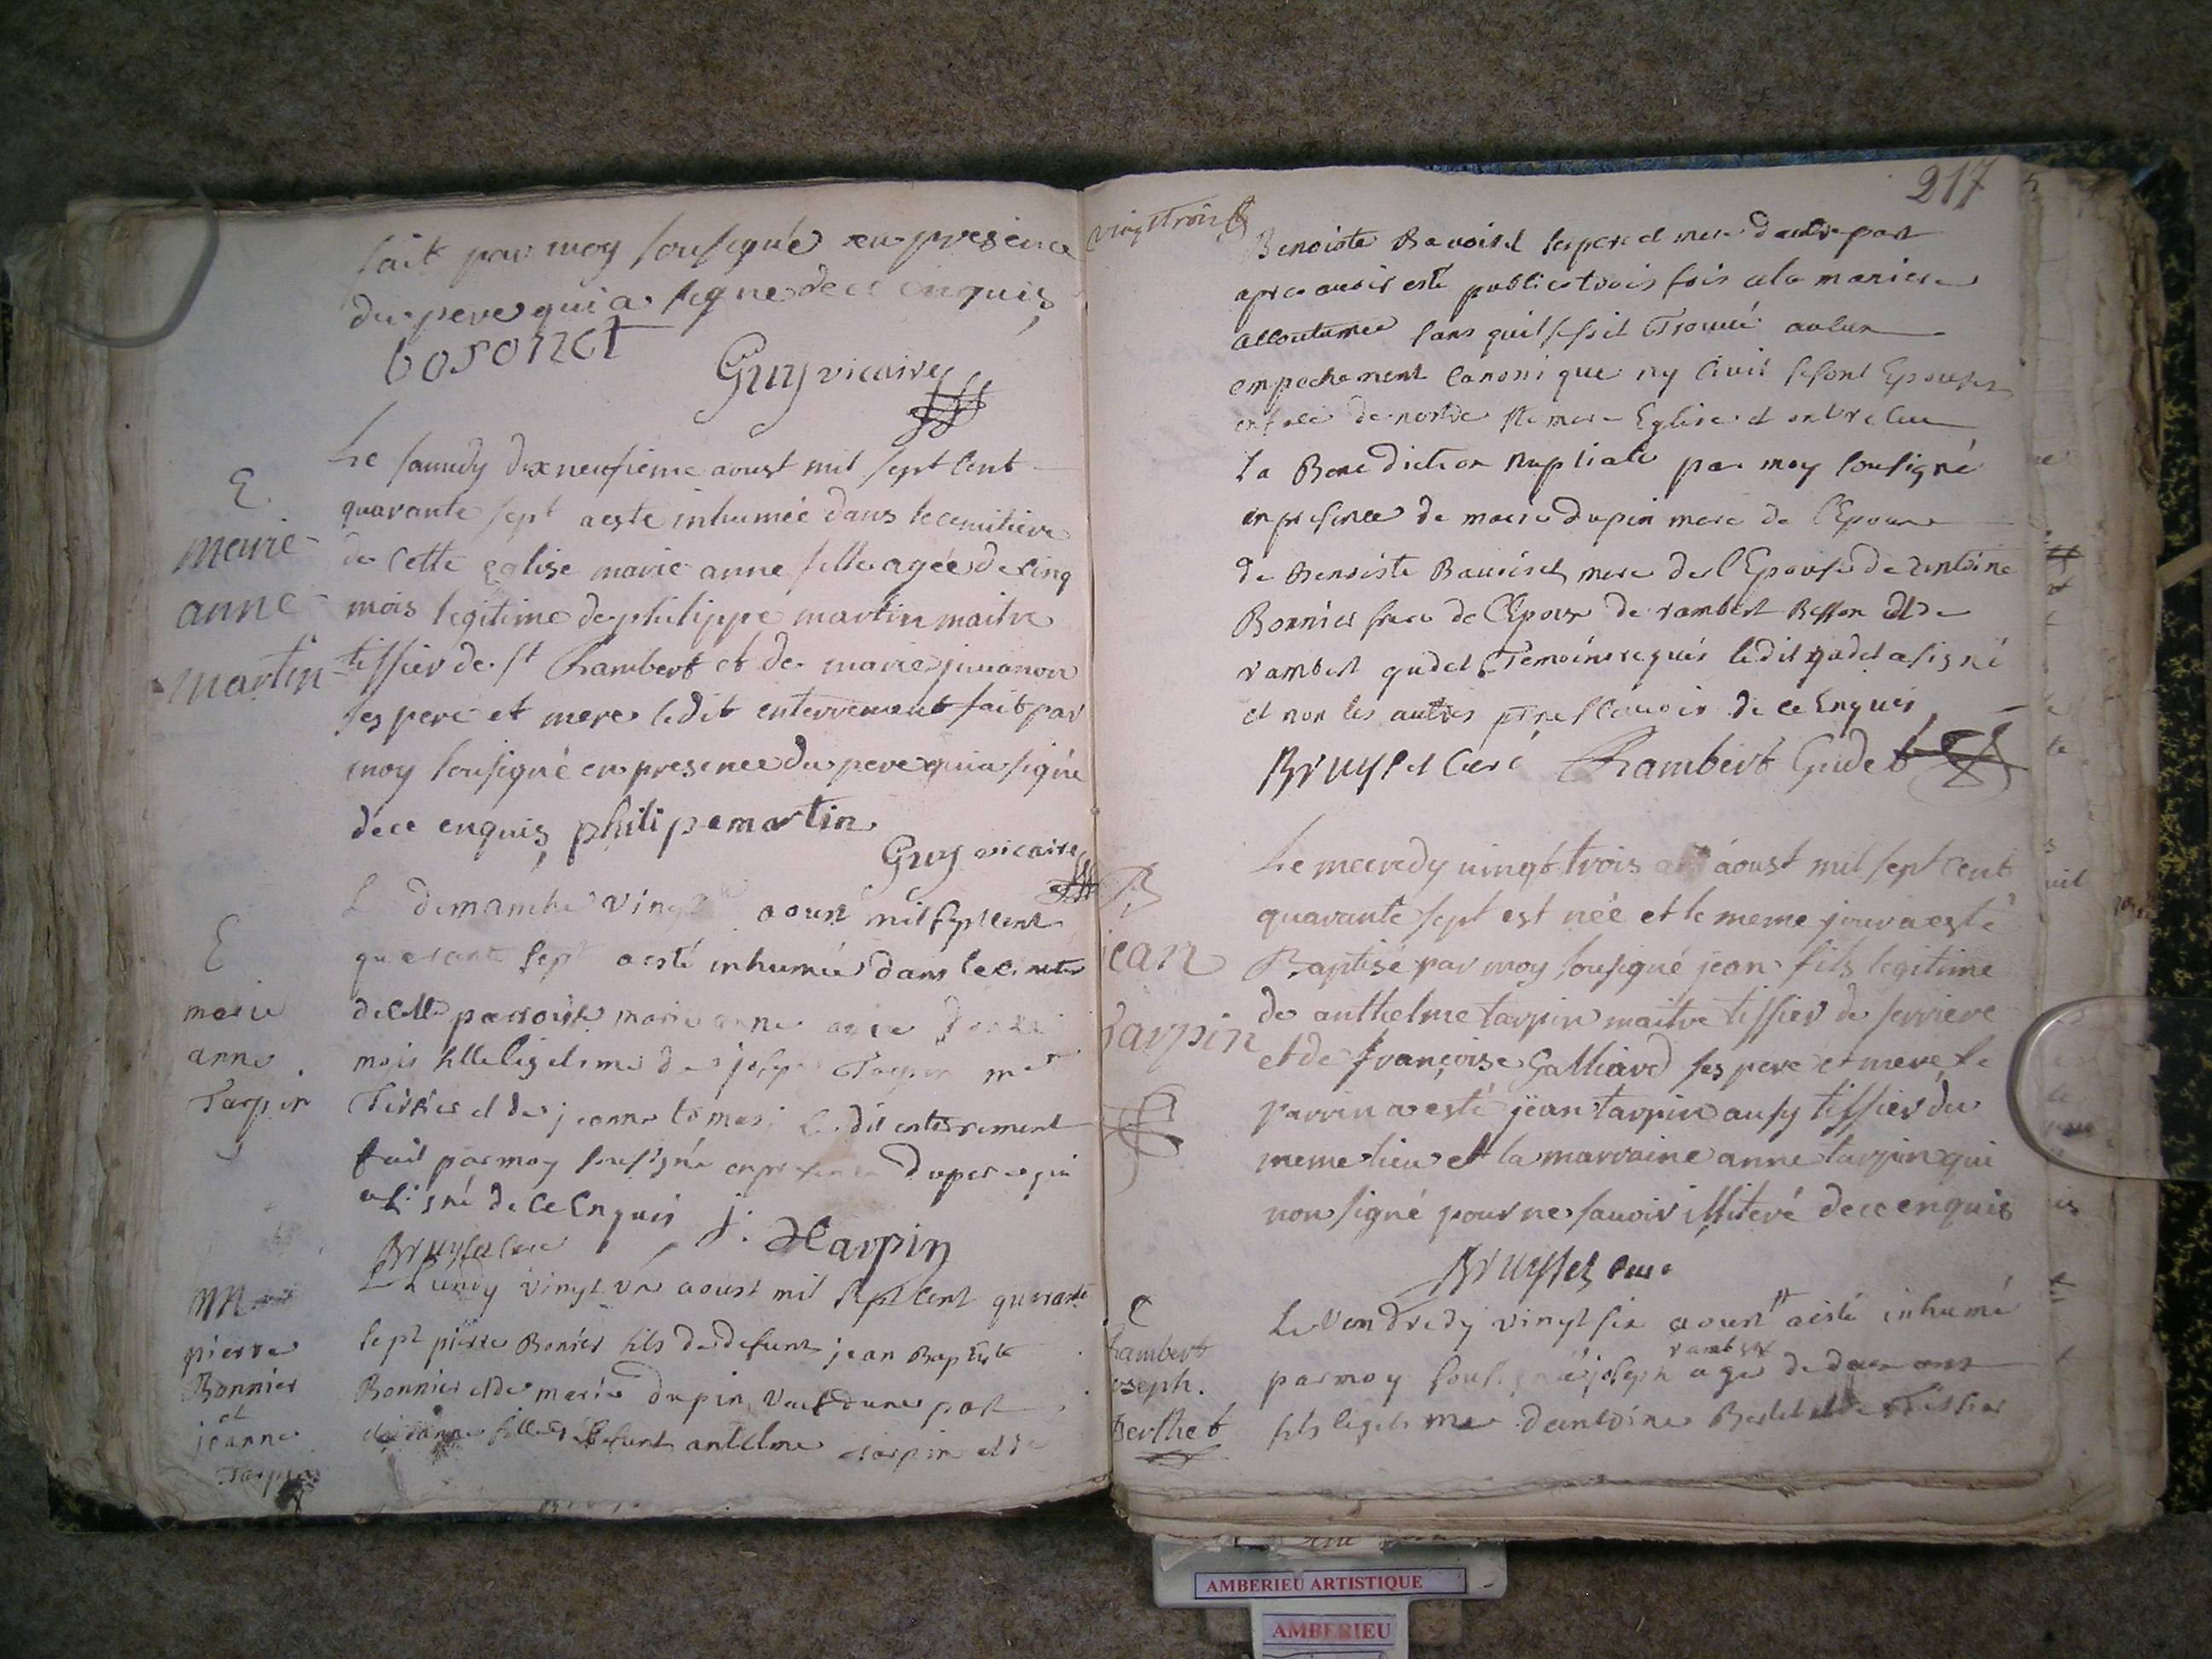 fait par moy sousigné en presence
du pere qui a signe de ce enquis
bosonet
Guy vicaire
E
marie
anne
martin
Le samedy dixneufieme aoust mil sept cent
quarante sept a esté inhumée dans le cemitiere
de cette eglise marie anne fille agée de cinq
mois legitime de philippe martin maitre
tissier de st Rambert et de marie juvanon
ses pere et mere ledit enterrement fait par
moy sousigné en presence du pere qui a signé
de ce enquis philipe martin
Guy vicaire
E
marie
anne
Tarpin
L demanche vingt aoust mil sept cent
quarante sept a esté inhumée dans le
de cette parroisse marie anne
mois fille legitime de joseph Tarpin me
Tissier et de jeanne ledit enterrement
fait par moy sousigné en presence du pere qui
a signé de ce enquis j. Tarpin
Bruyset curé
M
pierre
Bonnier
et
jeanne
Tarpin
L Lundy vingt un aoust mil sept cent quarante
sept pierre Bonier fils de defunt jean Baptiste
Bonnier et de marie dupin dune part
et jeanne fille de defunt antelme Tarpin et de
217
vingt trois
Benoiste Bavoiset ses pere et mere dautre part
apres avoir esté publies trois fois a la maniere
accoutumee sans quil se soit Trouvé aucun
empechement canonique ny civil se sont Epousés
en face de notre ste mere Eglise et ont recue
la Benediction Nuptiale par moy sousigné
en presence de marie dupin mere de l'Epoux
de Benoiste Bavoiset mere de l'Epouse de antoine
Bonnier frere de l'Epoux de rambert Besson et de
rambert gudet Temoins requis ledit gudet a signé
et non les autres pr ne scavoir de ce Enquis
Bruyset Curé Rambert Gudet
B
jean
tarpin
Le mecredy vingt trois aoust mil sept cent
quarante sept est née et le meme jour a esté
Baptisé par moy sousigné jean fils legitime
de anthelme tarpin maitre tissier de serriere
et de françoise Galliard ses pere et mere le
parrin a esté jean tarpin aussy tissier du
meme lieu et la marraine anne tarpin qui
non signé pour ne savoir illiteré de ce enquis
Bruyset Curé
E
Rambert
joseph.
Berthet
Le Vendredy vingt six aoust a esté inhumé
par moy sousigné joseph rambert agé de deux ans
fils legitime dantoine Bertet Tissier
AMBERIEU ARTISTIQUE
AMBERIEU